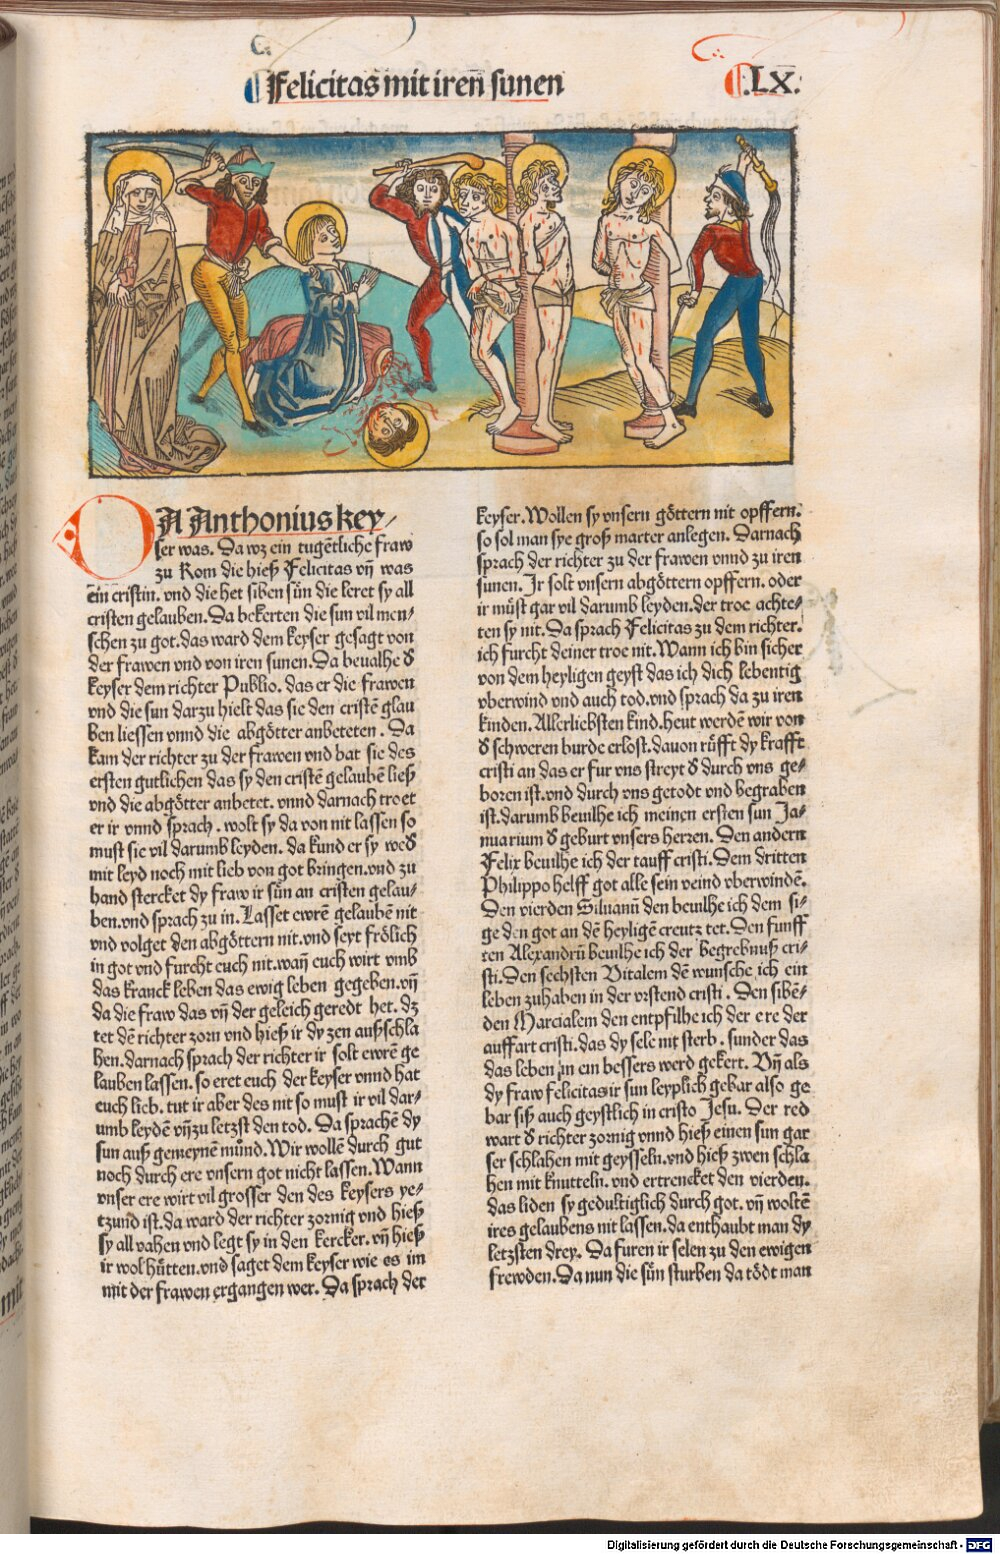 Felicitas mit iren̄ sunen
.LX.
DA Anthonius key/
ser was. Da wz ein tugētliche fraw
zu Rom die hieß Felicitas vn̄ was
ein cristin. vnd die het siben sün die leret sy all
cristen gelauben. Da bekerten die sun vil men⸗
schen zu got. das ward dem keyser gesagt von
der frawen vnd von iren sunen. Da beualhe ď
keyser dem richter Publio. das er die frawen
vnd die sun darzu hielt das sie den cristē glau
ben liessen vnnd die abgötter anbeteten. Da
kam der richter zu der frawen vnd bat sie des
ersten gutlichen das sy den cristē gelaubē ließ
vnd die abgötter anbetet. vnnd darnach troet
er ir vnnd sprach. wolt sy da von nit lassen so
must sie vil darumb leyden. da kund er sy weď
mit leyd noch mit lieb von got bringen. vnd zu
hand stercket dy fraw ir sün an cristen gelau⸗
ben. vnd sprach zu in. Lasset ewrē gelaubē nit
vnd volget den abgöttern nit. vnd seyt frölich
in got vnd furcht euch nit. wan̄ euch wirt vmb
das kranck leben das ewig leben gegeben. vn̄
da die fraw das vn̄ der geleich geredt het. dz
tet dē richter zorn vnd hieß ir dy zen außschla
hen. darnach sprach der richter ir solt ewrē ge
lauben lassen. so eret euch der keyser vnnd hat
euch lieb. tut ir aber des nit so must ir vil dar⸗
umb leydē vn̄ zu letzst den tod. Da sprachē dy
sun auß gemeynē mund. Wir wollē durch gut
noch durch ere vnsern got nicht lassen. Wann
vnser ere wirt vil grosser den des keysers ye⸗
tzund ist. da ward der richter zornig vnd hieß
sy all vahen vnd legt sy in den kercker. vn̄ hieß
ir wol hütten. vnd saget dem keyser wie es im
mit der frawen ergangen wer. Da sprach der
keyser. Wollen sy vnsern göttern nit opffern.
so sol man sye groß marter anlegen. Darnach
sprach der richter zu der frawen vnnd zu iren
sunen. Ir solt vnsern abgöttern opffern. oder
ir müst gar vil darumb leyden. der troe achte⸗
ten sy nit. Da sprach Felicitas zu dem richter.
ich furcht deiner troe nit. Wann ich bin sicher
von dem heyligen geyst das ich dich lebentig
vberwind vnd auch tod. vnd sprach da zu iren
kinden. Allerliebsten kind. heut werdē wir von
ď schweren burde erlost. dauon rüfft dy krafft
cristi an das er fur vns streyt ď durch vns ge⸗
boren ist. vnd durch vns getodt vnd begraben
ist. darumb beuilhe ich meinen ersten sun Ja⸗
nuarium ď geburt vnsers herren. Den andern
Felix beuilhe ich der tauff cristi. Dem dritten
Philippo helff got alle sein veind vberwindē.
Den vierden Siluanū den beuilhe ich dem si⸗
ge den got an dē heyligē creutz tet. Den funff
ten Alexandrū beuilhe ich der begrebnuß cri⸗
sti. Den sechsten Vitalem dē wunsche ich ein
leben zuhaben in der vrstend cristi. Den sibē⸗
den Marcialem den entpfilhe ich der ere der
auffart cristi. das dy sele nit sterb. sunder das
das leben in ein bessers werd gekert. Vn̄ als
dy fraw felicitas ir sun leyplich gebar also ge
bar siß auch geystlich in cristo Jesu. Der red
wart ď richter zornig vnnd hieß einen sun gar
ser schlahen mit geysseln. vnd hieß zwen schla
hen mit knutteln. vnd ertrencket den vierden.
das liden sy gedultiglich durch got. vn̄ woltē
ires gelaubens nit lassen. da enthaubt man dy
letzsten drey. Da furen ir selen zu den ewigen
frewden. Da nun die sün sturben da tödt man
Digitalisierung gefördert durch die Deutsche Forschungsgemeinschaft - DFG